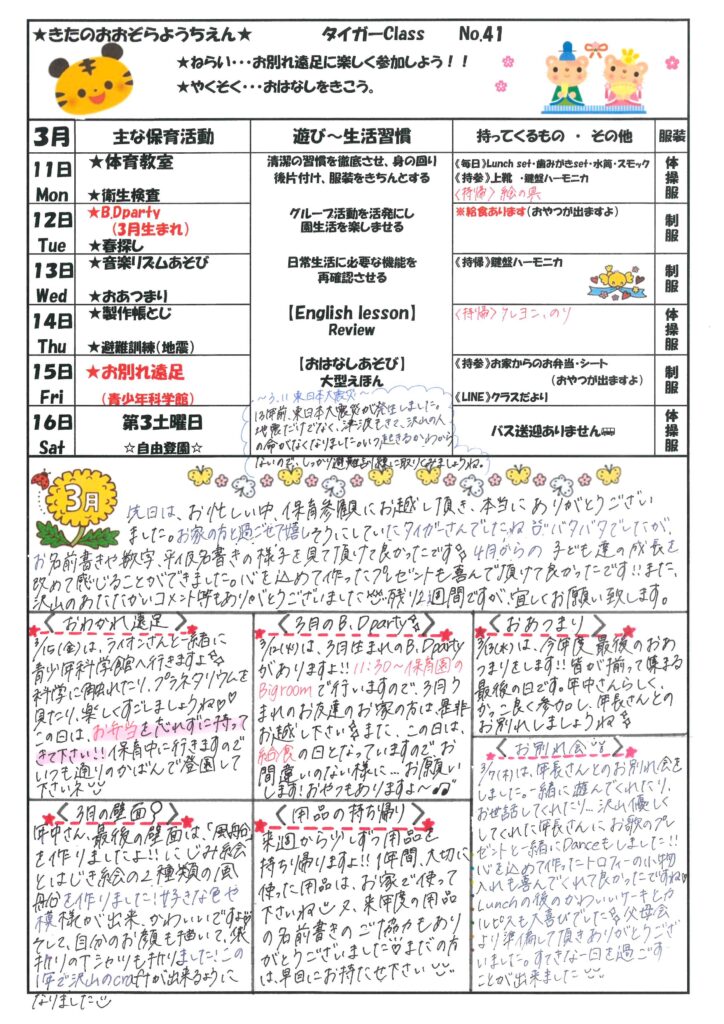 ★きたのおおぞらようちえん★　タイガーClass　No.41
★ねらい･･･お別れ遠足に楽しく参加しよう！！
★やくそく･･･おはなしをきこう。
3月　主な保育活動　遊び～生活習慣　持ってくるもの ・ その他　服装
11日 Mon
★体育教室
★衛生検査
清潔の習慣を徹底させ、身の回り
後片付け、服装をきちんとする
《毎日》Lunch set・歯みがきset・水筒・スモック
《持参》上靴 ・鍵盤ハーモニカ
〈持帰〉絵の具
体操服
12日 Tue
★B.Dparty
(3月生まれ)
★春探し
グループ活動を活発にし
園生活を楽しませる
※給食あります(おやつが出ますよ)
制服
13日 Wed
★音楽リズムあそび
★おあつまり
日常生活に必要な機能を
再確認させる
《持帰》鍵盤ハーモニカ
制服
14日 Thu
★製作帳とじ
★避難訓練(地震)
【English lesson】
Review
〈持帰〉クレヨン、のり
体操服
15日 Fri
★お別れ遠足
(青少年科学館)
【おはなしあそび】
大型えほん
《持参》お家からのお弁当・シート
(おやつが出ますよ)
《LINE》クラスだより
制服
16日 Sat
第3土曜日
☆自由登園☆
～3.11 東日本大震災～
13年前、東日本大震災が発生しました。
地震だけでなく、津波もきて、沢山の人
の命がなくなりました。いつ起きるかわから
ないので、しっかり避難訓練に取りくみましょうね。
バス送迎ありません
体操服
3月
先日は、お忙しい中、保育参観にお越し頂き、本当にありがとうござい
ました。お家の方と過ごせて嬉しそうにしていたタイガーさんでしたね。バタバタでしたが、
お名前書きや数字、平仮名書きの様子を見て頂けて良かったです。4月からの子ども達の成長を
改めて感じることができました。心を込めて作ったプレゼントも喜んで頂けて良かったです!!また、
沢山のあたたかいコメント等もありがとうございました。残り2週間ですが、宜しくお願い致します。
〈おわかれ遠足〉
3/15(金)は、ライオンさんと一緒に
青少年科学館へ行きますよ
科学に触れたり、プラネタリウムを
見たり、楽しくすごしましょうね♡
この日は、お弁当を忘れずに持って
きて下さい!!保育中に行きますので
いつも通りのかばんで登園して
下さいネ
〈3月のB.Dparty〉
3/12(火)は、3月生まれのB.Dparty
がありますよ!!11:30～保育園の
Bigroomで行いますので、3月う
まれのお友達のお家の方は、是非
お越し下さいまた、この日は、
給食の日となっていますので、お
間違いのない様に…お願いし
ます!おやつもありますよ～♪
〈おあつまり〉
3/13(水)は、今年度最後のおあ
つまりをします!!皆が揃って集まる
最後の日です。年中さんらしく、
かっこ良く参加し、年長さんとの
お別れしましょうね
〈お別れ会〉
3/7(木)は、年長さんとのお別れ会を
しました。一緒に遊んでくれたり、
お世話してくれたり…沢山優しく
してくれた年長さんにお歌のプレ
ゼントと一緒にDanceもしました!!
心を込めて作ったトロフィーの小物
入れも喜んでくれて良かったですね
Lunchの後のかわいいケーキとカ
ルピスも大喜びでした父母会
より準備して頂きありがとうござ
いました。すてきな一日を過ごす
ことが出来ました
〈3月の壁面〉
年中さん、最後の壁面は、「風船」
を作りましたよ!!にじみ絵
とはじき絵の2種類の風
船を作りました!好きな色や
模様が出来、かわいいですね
そして、自分のお顔も描いて、袋
折りのTシャツも折りました!この
1年で沢山のcraftが出来るように
なりました
〈用品の持ち帰り〉
来週から少しずつ用品を
持ち帰りますよ!!1年間、大切に
使った用品は、お家で使って
下さいね又、来年度の用品
の名前書きのご協力もあり
がとうございました♡まだの方
は、早目にお持たせ下さい